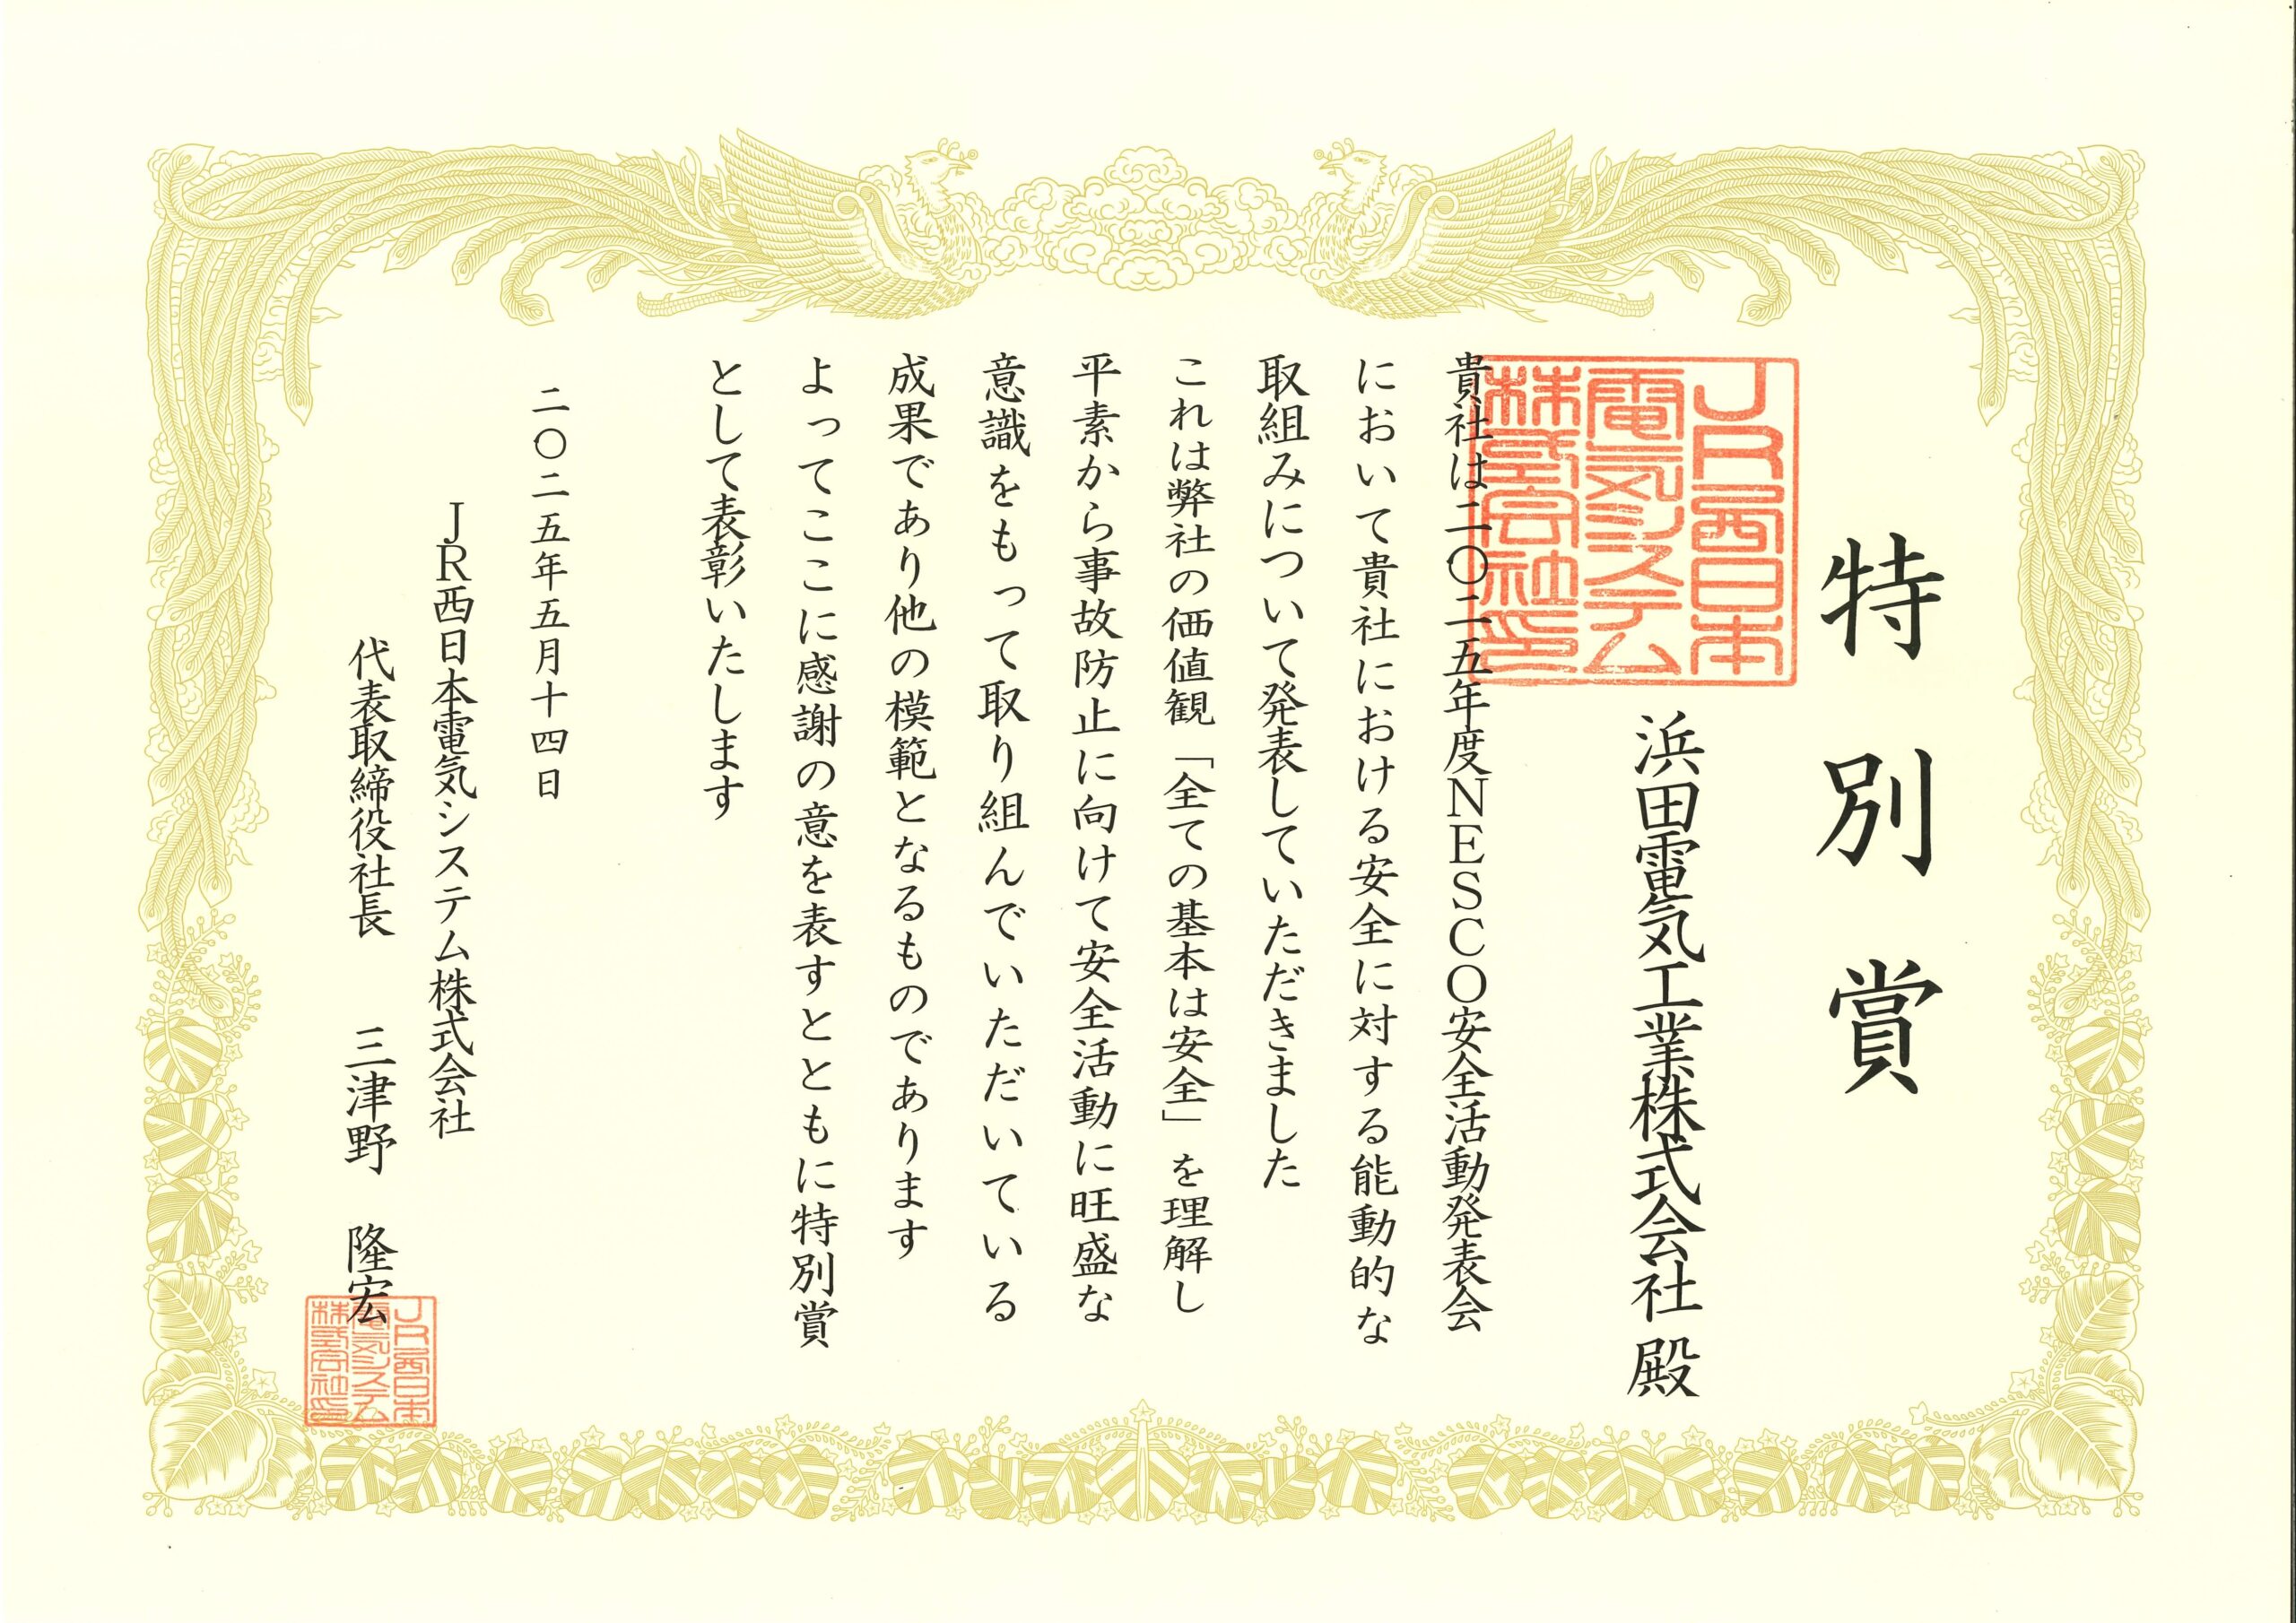 特別賞
浜田電気工業株式会社 殿
貴社は二〇二五年度NESCO安全活動発表会
において貴社における安全に対する能動的な
取組みについて発表していただきました
これは弊社の価値観「全ての基本は安全」を理解し
平素から事故防止に向けて安全活動に旺盛な
意識をもって取り組んでいただいている
成果であり他の模範となるものであります
よってここに感謝の意を表すとともに特別賞
として表彰いたします
二〇二五年五月十四日
JR西日本電気システム株式会社
代表取締役社長 三津野 隆宏
JR西日本
電気システム
株式会社印
JR西日本
電気システム
株式会社印